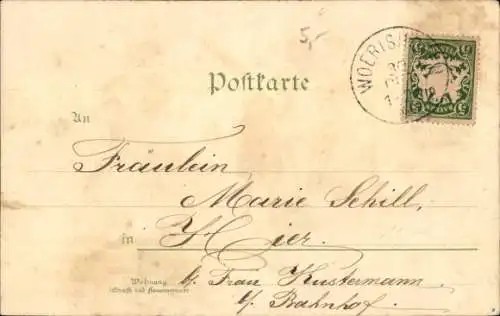 5,-
WOERIS
Postkarte
An
Fräulein
Marie Schill,
in Hier.
Wohnung
(Straße und Hausnummer)
b/ Frau Kustermann
b/ Bahnhof.